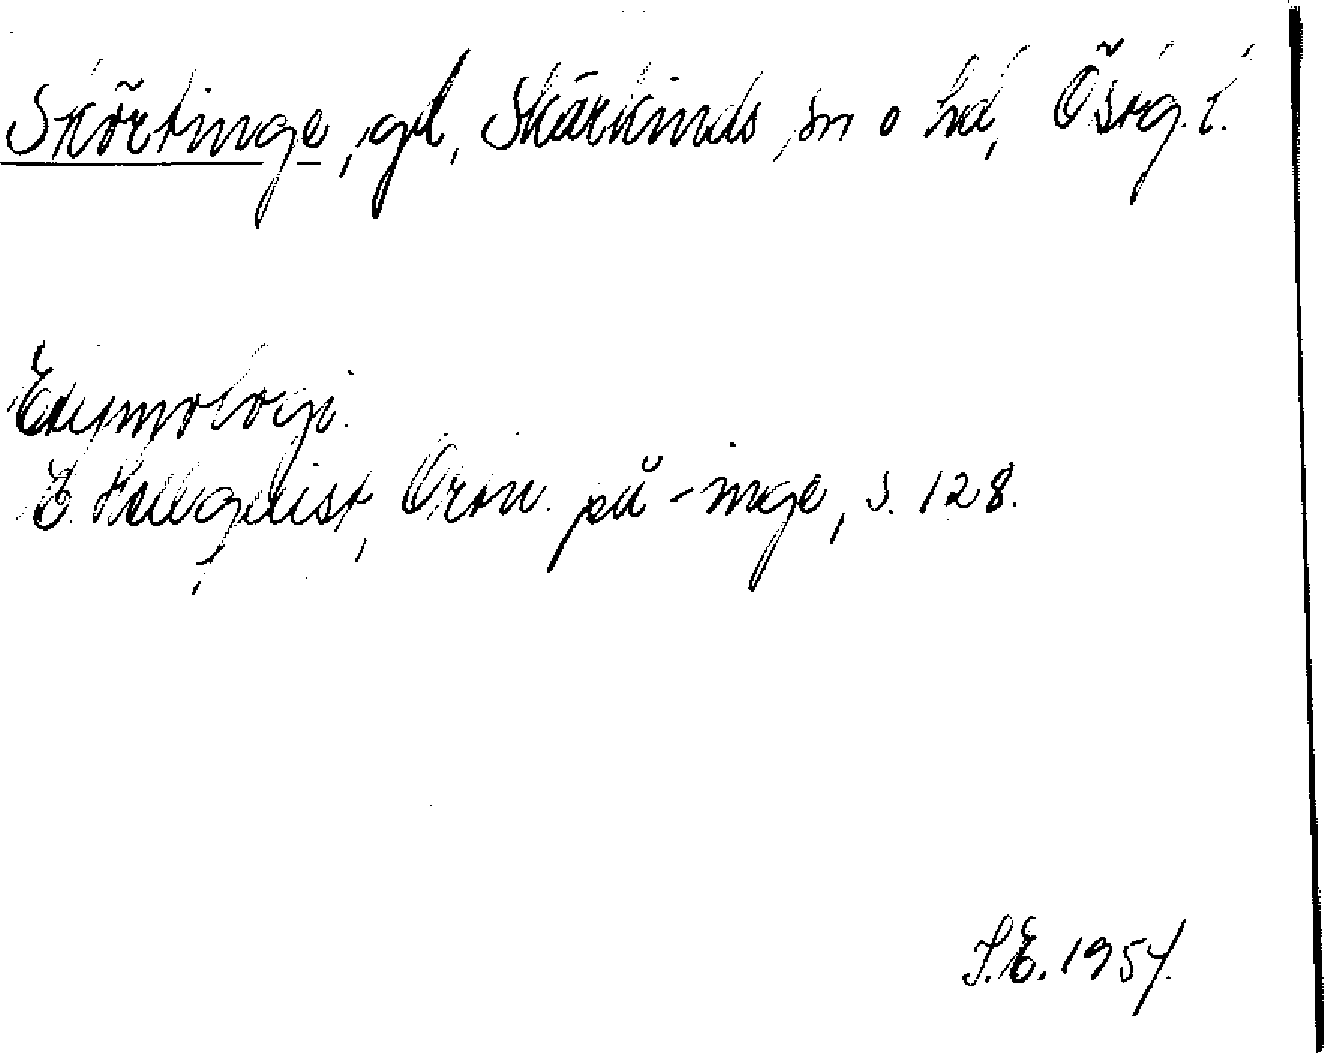 Skörtinge, gd, Skärkinds sn o hd, Östg. l.
Etymologi.
E. Hellquist, Ortn. på -inge, s. 128.
S.E. 1957.